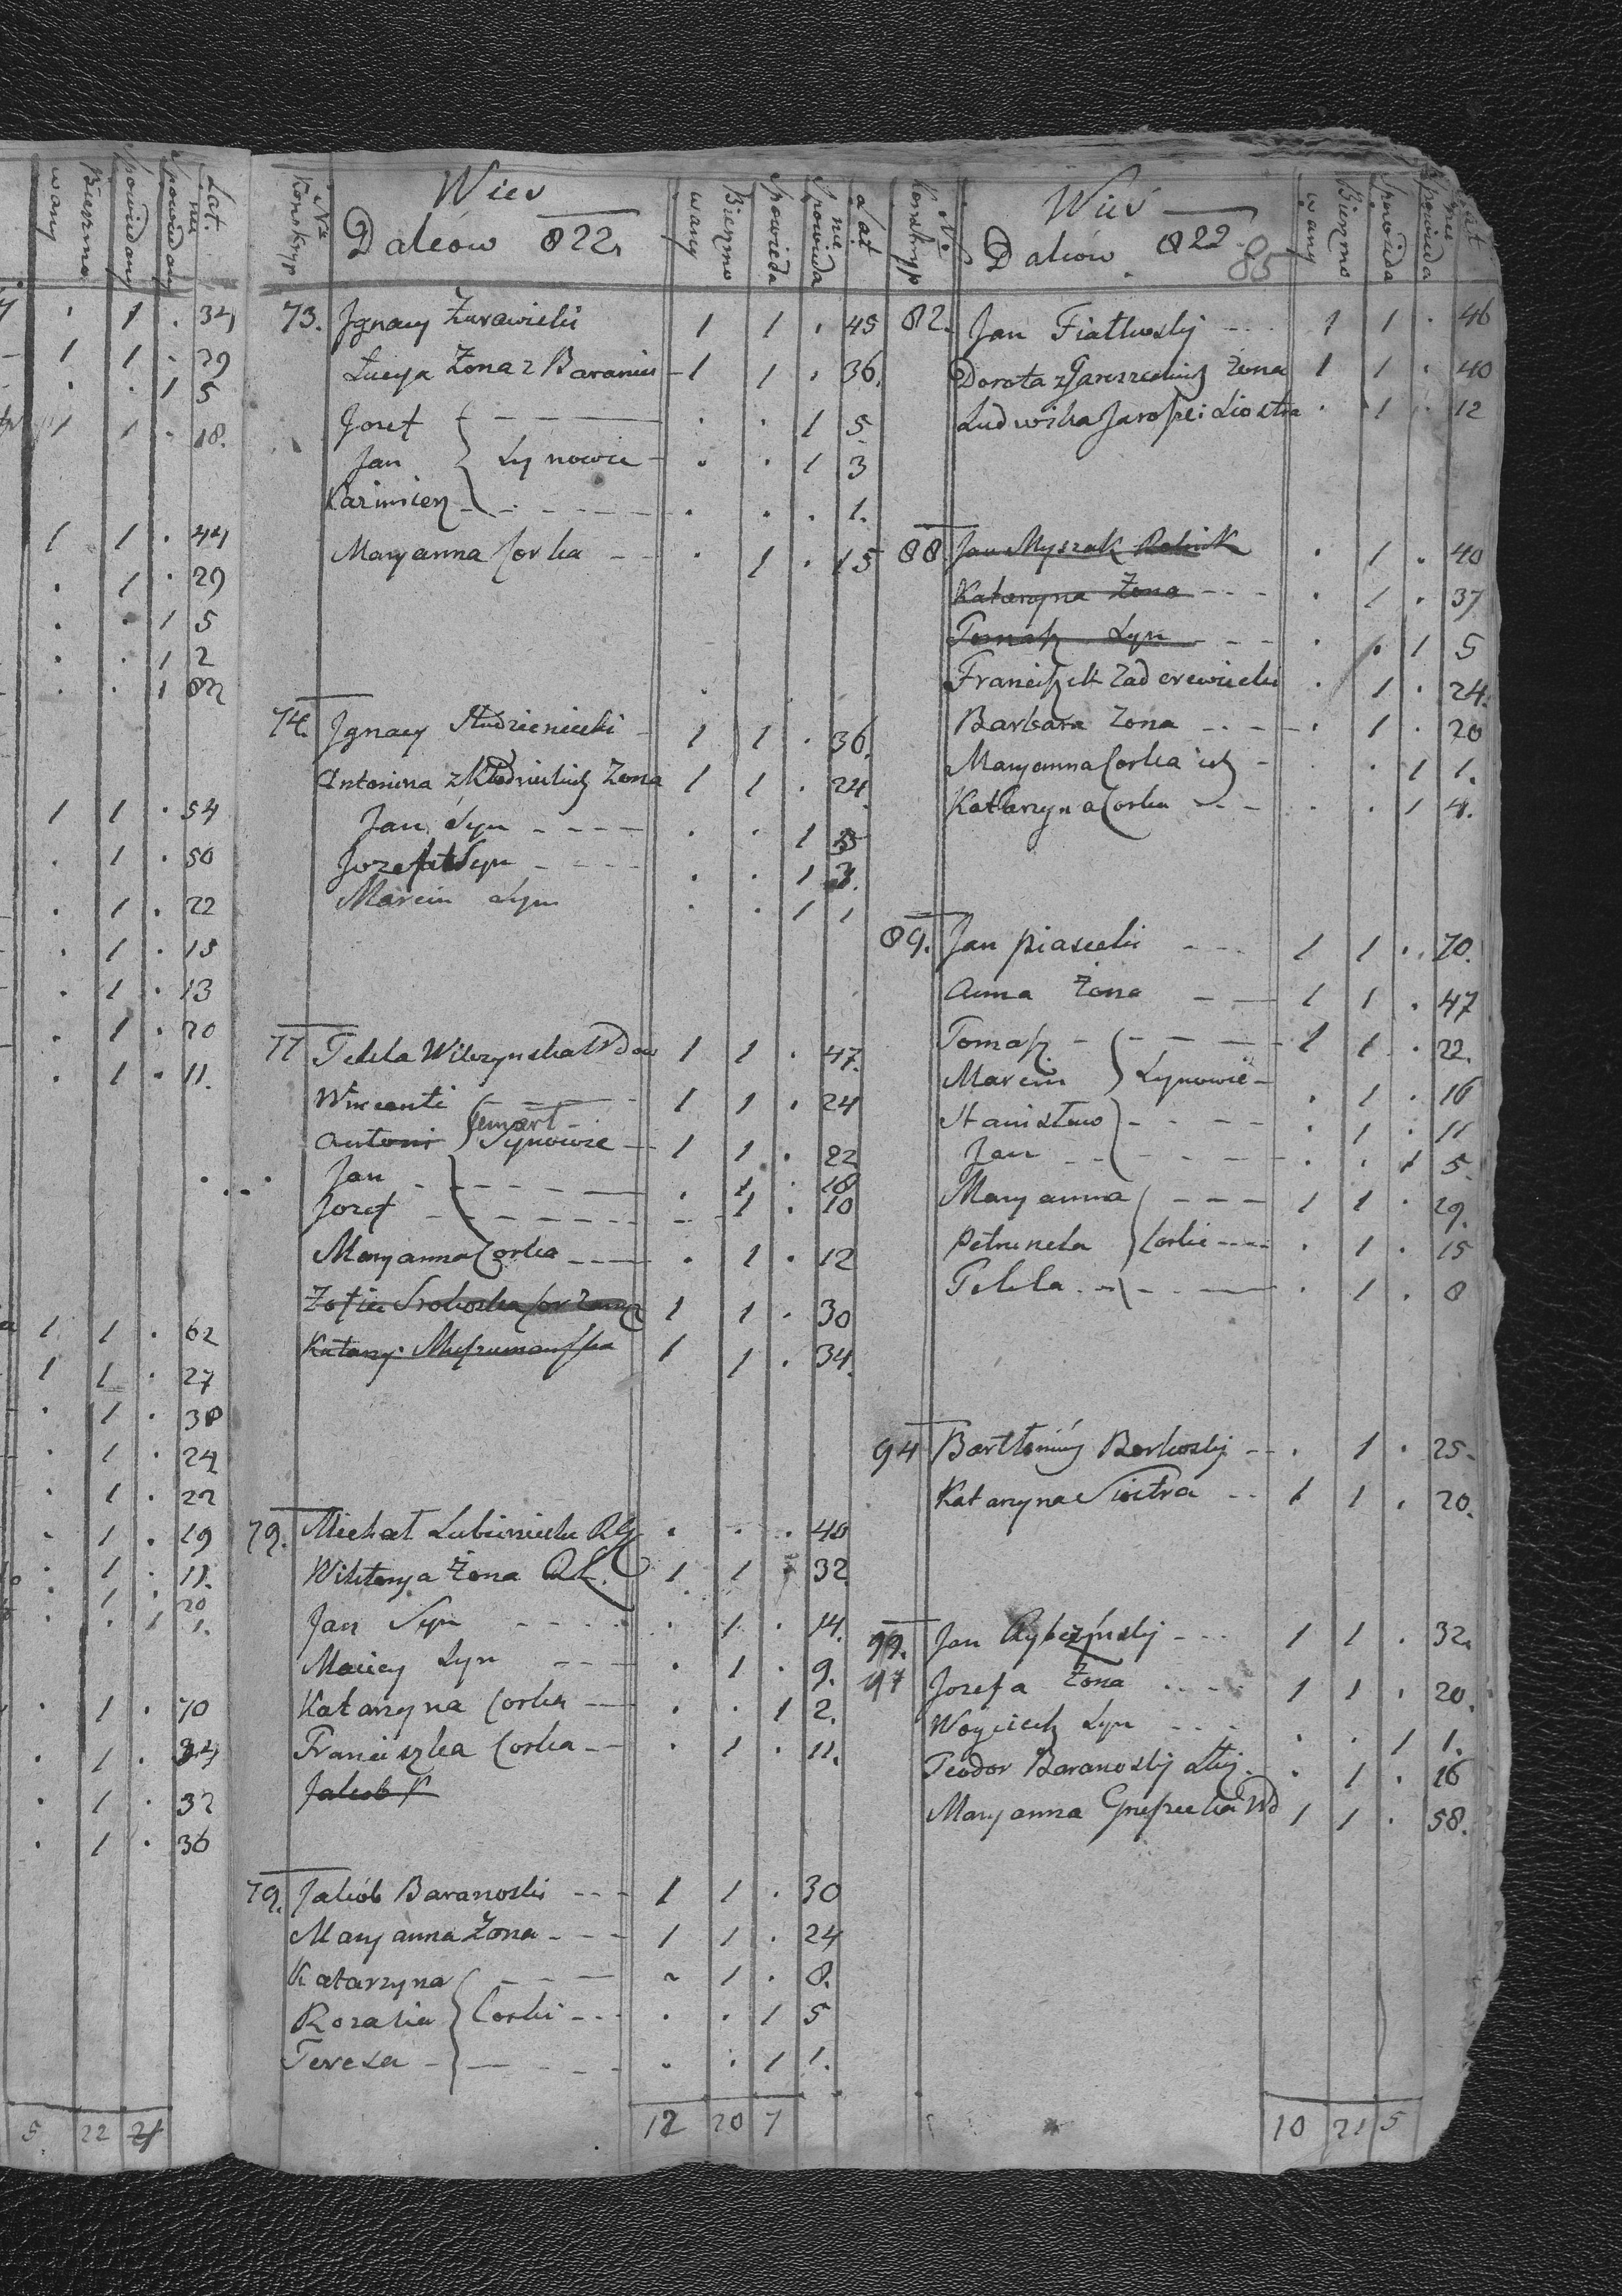 Lat.
nie spowiadany
spowiadany
Bierzmowany
1 . 34
1 1 . 29
. . 1 5
1 1 . 18.
1 1 . 44
. 1 . 29
. . 1 5
. . 1 2
. . 1
1 1 . 54
. 1 . 50
. 1 . 22
. 1 . 15
. 1 . 13
. 1 . 20
. 1 . 11.
1 1 . 62
1 1 . 27
. 1 . 30
. 1 . 24
. 1 . 22
. 1 . 19
. 1 . 11.
. 1 20
. . 1 1.
. 1 . 70
. 1 . 34
. 1 . 32
. 1 . 36
5. 22 21
Nro Konskryp
Wies
Dalców 822
Bierzmowany
Spowieda
nie Spowieda
Lat
73. Jgnacy Żurawicki 1 1 . 45
Łucya Żona z Baranics - 1 1 . 36.
Jozef . . 1 5
Jan } Synowie - . . 1 3
Kazimierz . . . 1.
Maryanna Corka - - . 1 . 15
74. Jgnacy Studzieniecki - 1 1 . 36.
Antonina z Kłodnickich Żona 1 1 . 24.
Jan Syn - - - - . . 1 5
Jozefat Syn - - - - . . 1 3.
Marcin Syn . . 1 1
77 Tekla Wilczynska Wdow 1 1 . 47.
Wincenti 1 1 . 24
umarł
Antoni Synowie - 1 1 . 22
Jan . 1 . 18
Jozef . 1 . 10
Maryanna Corka - - - . 1 . 12
Zofia 1 1 . 30
Katarz: 1 1 . 34.
79. Michał Lubieniecki RG . . . 40
Wiktorya Żona RŁ. 1 1 32.
Jan Syn - - - - . 1 . 14.
Maciey Syn - - - . 1 . 9.
Katarzyna Corka - - . . 1 2.
Franciszka Corka - - . 1 . 11.
Jakub K
79. Jakób Baranoski - - - 1 1 . 30
Maryanna Żona - - - 1 1 . 24
Katarzyna . 1 . 8.
Rozalia } Corki - - - . . 1 5
Teresa . . 1 1.
12 20 7
Nro Konskryp
Wies
Dalców. 822
85
Bierzmowany
Spowieda
nie Spowieda
Lat
82. Jan Fiatkoskj - - - 1 1 . 46
Dorota z Żona 1 1 . 40
Ludwika Siostra . 1 . 12
88 Jan Myszak Rolnik . 1 . 40
Katarzyna Żona - - - . 1 . 37
Tomasz Syn - - - . . 1 5
Franciszek Zaderewiecki . 1 . 24.
Barbara Żona - - - . 1 . 20
Maryanna Corka ich - . . 1 1.
Katarzyna Corka - - - . . 1 4.
89. Jan piasecki - - - 1 1 . 70.
Anna Żona - - 1 1 . 47
Tomasz 1 1 . 22.
Marcin } Synowie - . 1 . 16
Stanisław . 1 . 11
Jan . . 1 5
Maryanna 1 1 . 29.
Petrunela } Corki - - - - . 1 . 15
Tekla . 1 . 8
94 Bartłomiej Borkoskj - - . 1 . 25.
Katarzyna Siostra - - 1 1 . 20.
99. Jan Rybczynskj - - - 1 1 . 32.
97 Jozefa Żona - - - - 1 1 . 20.
Woyciech Syn - - - . . 1 1.
Teodor Baranoskj Słuj. . 1 . 16
Maryanna Wd 1 1 . 58.
10 21 5